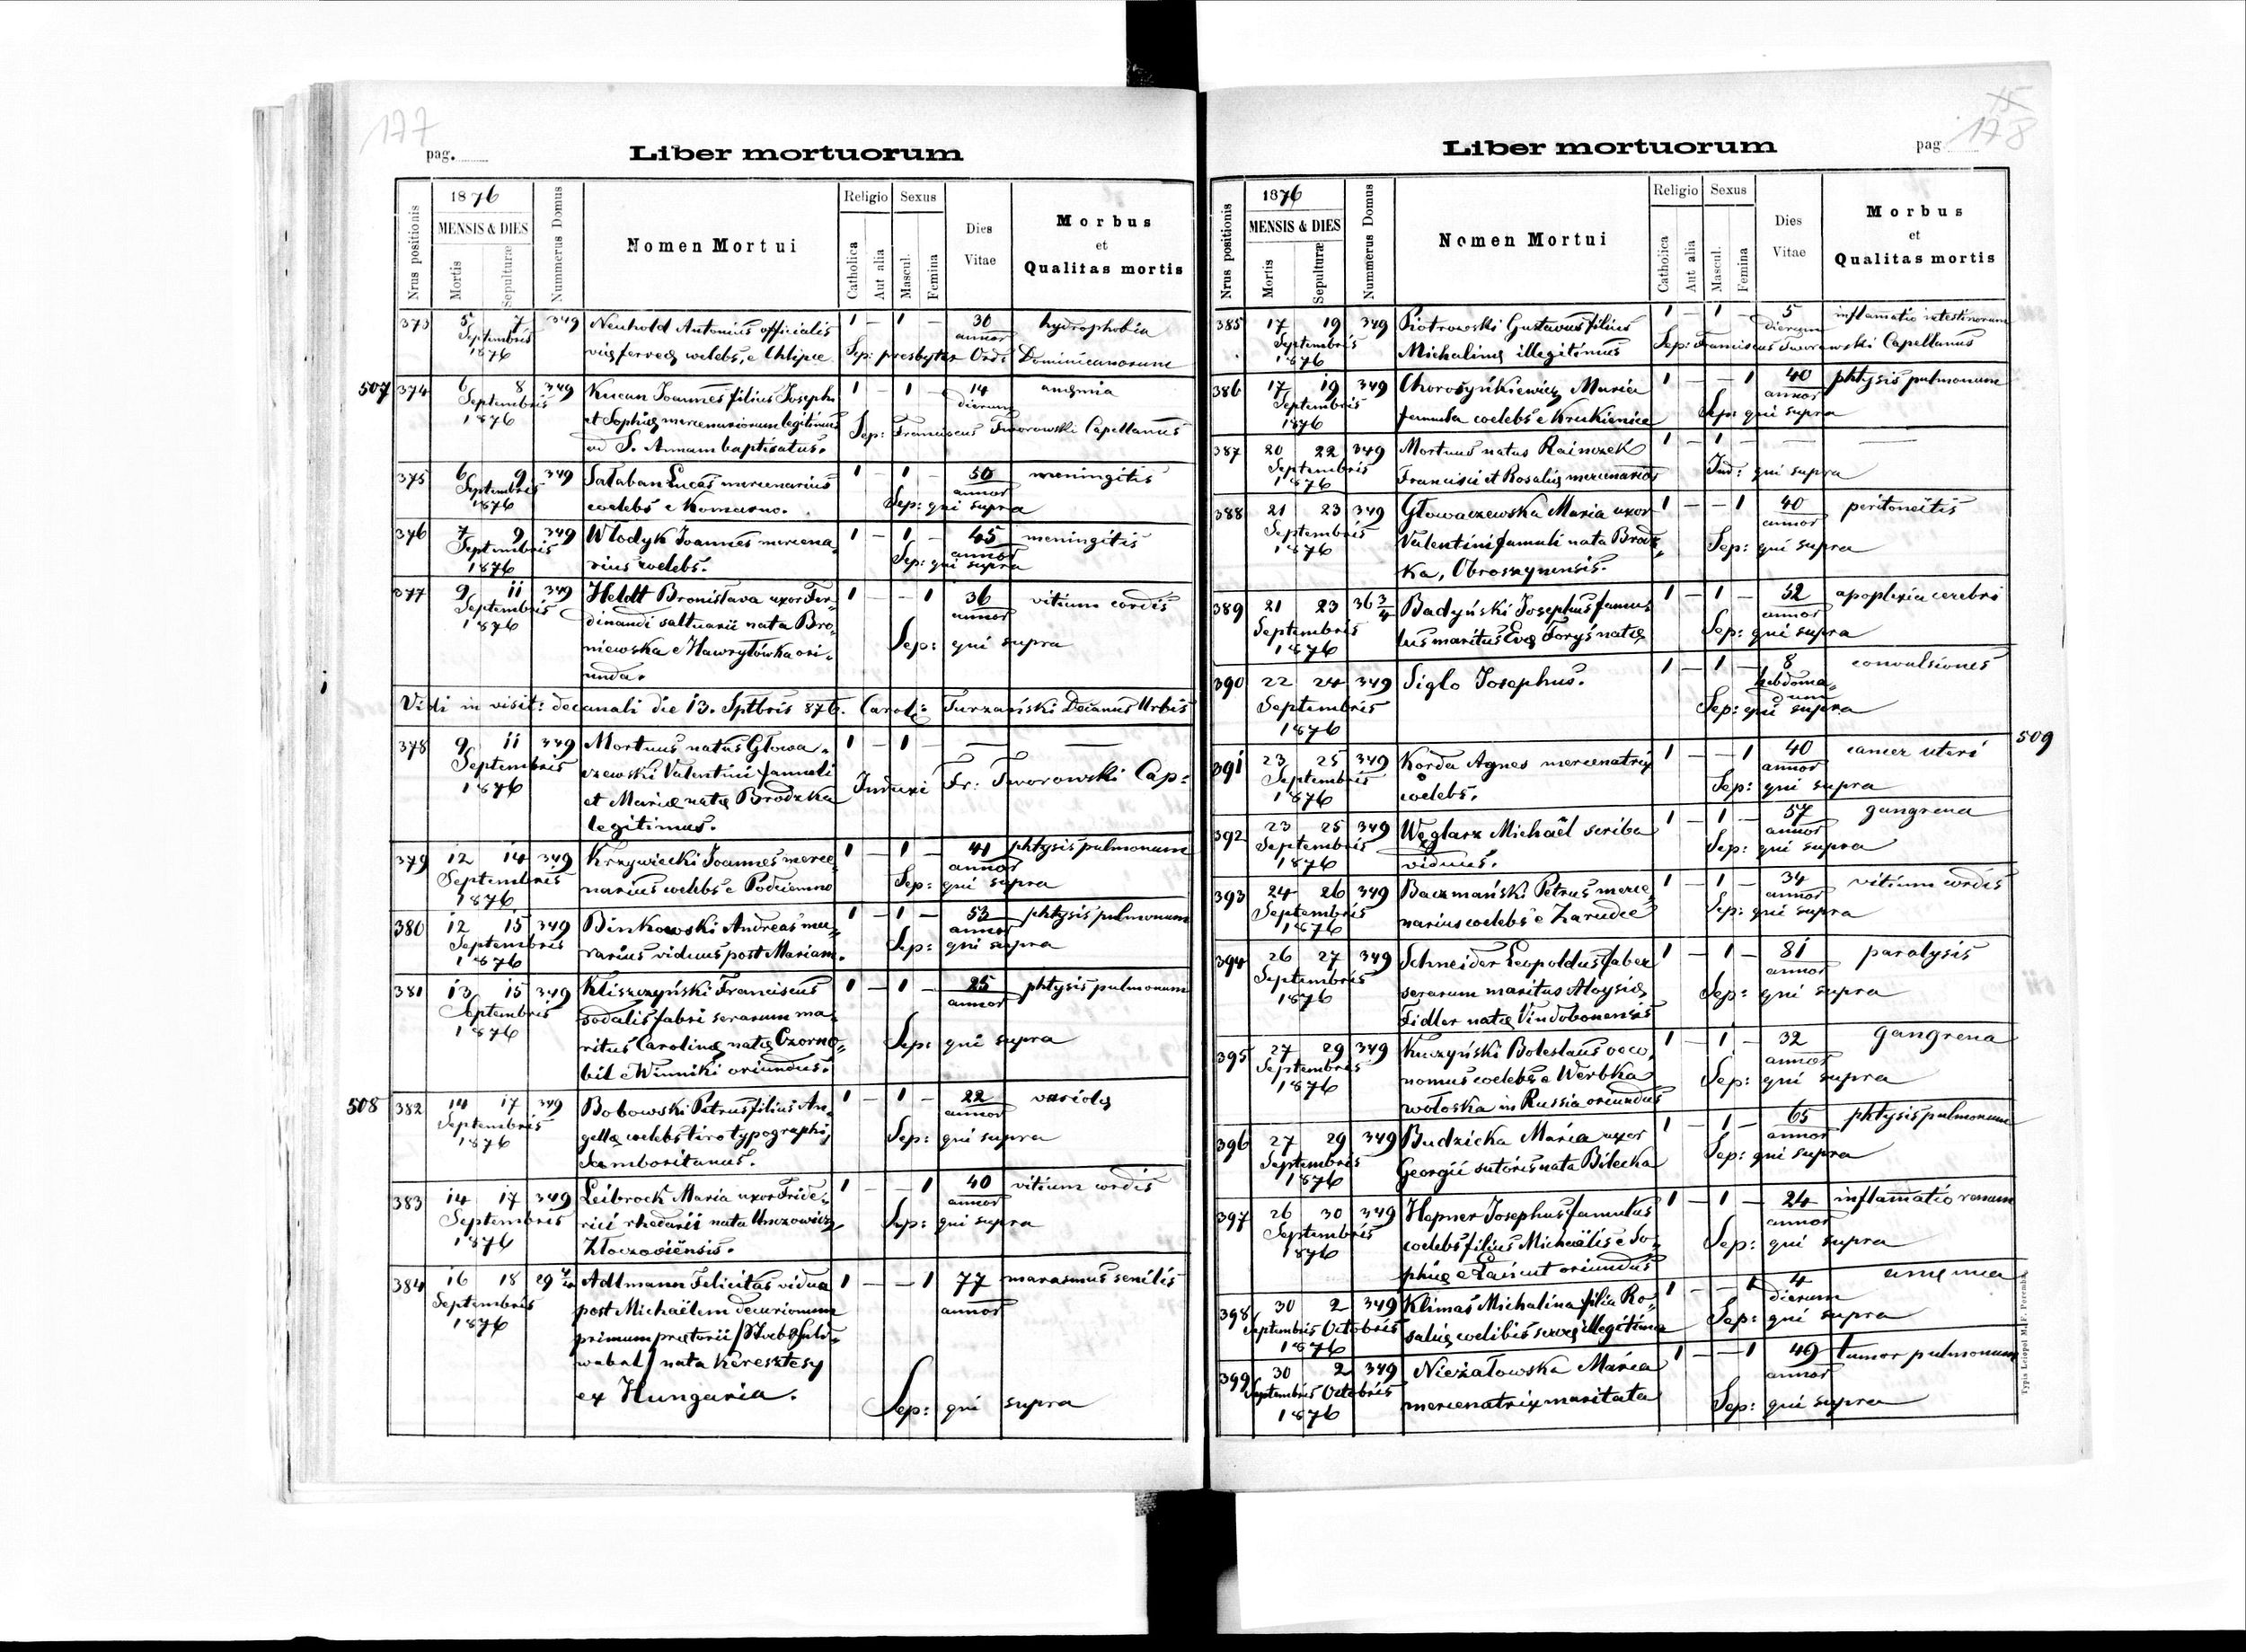 177
pag.
Liber mortuorum
Nrus positionis
1876
MENSIS & DIES
Mortis
Sepulturæ
Nummerus Domus
Nomen Mortui
Religio
Catholica
Aut alia
Sexus
Mascul.
Femina
Dies
Vitae
Morbus
et
Qualitas mortis
373 5 7 349 Neuhold Antonius officialis 1 – 1 – 30 hydrophobia
Septembris annor
1876 viæ ferreæ coelebs, e Chlipie Sep: presbyter Ord: Dominicanorum
507 374 6 8 349 Kucan Joannes filius Josephi 1 – 1 – 14 anæmia
Septembris et Sophiæ mercenariorum legitimus dierum
1876 ad S. Annam baptisatus. Sep: Franciscus Tworowski Capellanus
375 6 9 349 Sataban Lucas mercenarius 1 – 1 – 50 meningitis
Septembris annor
1876 coelebs e Komarno. Sep: qui supra
376 7 9 349 Włodyk Joannes mercena- 1 – 1 – 45 meningitis
Septembris annor
1876 rius coelebs. Sep: qui supra
377 9 11 349 Heldt Bronislava uxor Fer- 1 – – 1 36 vitium cordis
Septembris dinandi saltuarii nata Bro- annor
1876 niewska e Hawryłówka ori- Sep: qui supra
unda.
Vidi in visit: decanali die 13. Sptbris 876. Carol: Turzański Decanus Urbis
378 9 11 349 Mortuus natus Głowa- 1 – 1 – — —
Septembris czewski Valentini famuli
1876 et Mariæ natæ Brodzka Induxi Fr: Tworowski Cap:
legitimus.
379 12 14 349 Krzywiecki Joannes merce- 1 – 1 – 41 phtysis pulmonum
Septembris annor
1876 narius coelebs e Podciemno Sep: qui supra
380 12 15 349 Binkowski Andreas mu- 1 – 1 – 53 phtysis pulmonum
Septembris annor
1876 rarius viduus post Mariam. Sep: qui supra
381 13 15 349 Kliszczyński Franciscus 1 – 1 – 25 phtysis pulmonum
Septembris sodalis fabri serarum ma- annor
1876 ritus Carolinæ natæ Czorno- Sep: qui supra
bil e Winniki oriundus.
508 382 14 17 349 Bobowski Petrus filius An- 1 – 1 – 22 variolæ
Septembris gellæ coelebs tiro typographi annor
1876 Samboritanus. Sep: qui supra
383 14 17 349 Leibrock Maria uxor Fride- 1 – – 1 40 vitium cordis
Septembris rici rhedarii nata annor
1876 Złoczoviensis. Sep: qui supra
384 16 18 29 Adlmann Felicitas vidua 1 – – 1 77 marasmus senilis
Septembris post Michaëlem decurionum annor
1876 primum prætorii
nata Keresztesy
ex Hungaria. Sep: qui supra
15
178
Liber mortuorum
pag
Nrus positionis
1876
MENSIS & DIES
Mortis
Sepulturæ
Nummerus Domus
Nomen Mortui
Religio
Catholica
Aut alia
Sexus
Mascul.
Femina
Dies
Vitae
Morbus
et
Qualitas mortis
385 17 19 349 Piotrowski Gustavus filius 1 – 1 – 5 inflamatio intestinorum
Septembris dierum
1876 Michalinæ illegitimus Sep: Franciscus Tworowski Capellanus
386 17 19 349 Chorożyńkiewicz Maria 1 – – 1 40 phtysis pulmonum
Septembris annor
1876 famula coelebs e Krukienice Sep: qui supra
387 20 22 349 Mortuus natus Rainczek 1 – 1 — —
Septembris
1876 Francisci et Rosaliæ mercenarior Ind: qui supra
388 21 23 349 Głowaczewska Maria uxor 1 – – 1 40 peritoneitis
Septembris Valentini famuli nata Brodz- annor
1876 ka, Obroszynensis. Sep: qui supra
389 21 23 36 3/4 Badyński Josephus famu- 1 – 1 – 52 apoplexia cerebri
Septembris lus maritus Evæ Foryś natæ annor
1876 Sep: qui supra
390 22 24 349 Siglo Josephus. 1 – 1 – 8 convulsiones
Septembris hebdoma-
dum
1876 Sep: qui supra
509
391 23 25 349 Korda Agnes mercenatrix 1 – – 1 40 cancer uteri
Septembris annor
1876 coelebs. Sep: qui supra
392 23 25 349 Węglarz Michaël scriba 1 – 1 – 57 gangrena
Septembris annor
1876 viduus. Sep: qui supra
393 24 26 349 Baczmański Petrus merce- 1 – 1 – 34 vitium cordis
Septembris annor
1876 narius coelebs e Zarudce Sep: qui supra
394 26 27 349 Schneider Leopoldus faber 1 – 1 – 81 paralysis
Septembris serarum maritus Aloysiæ annor
1876 Fidler natæ Vindobonensis Sep: qui supra
395 27 29 349 Kuczyński Boleslaus oeco- 1 – 1 – 32 gangrena
Septembris nomus coelebs e Werbka annor
1876 wołoska in Russia oriundus Sep: qui supra
396 27 29 349 Budzicka Maria uxor 1 – 1 – 65 phtysis pulmonum
Septembris annor
1876 Georgii sutoris nata Bilecka Sep: qui supra
397 26 30 349 Hepner Josephus famulus 1 – 1 – 24 inflamatio renum
Septembris coelebs filius Michaëlis e So- annor
1876 phiæ e Łańcut oriundus Sep: qui supra
398 30 2 349 Klimas Michalina filia Ro- 1 – – 1 4 anæmia
Septembris Octobris dierum
1876 saliæ coelibis servæ illegitima Sep: qui supra
399 30 2 349 Nieżałowska Maria 1 – – 1 49 tumor pulmonum
Septembris Octobris annor
1876 mercenatrix maritata Sep: qui supra
Typis Leiopol M. F. Poremba